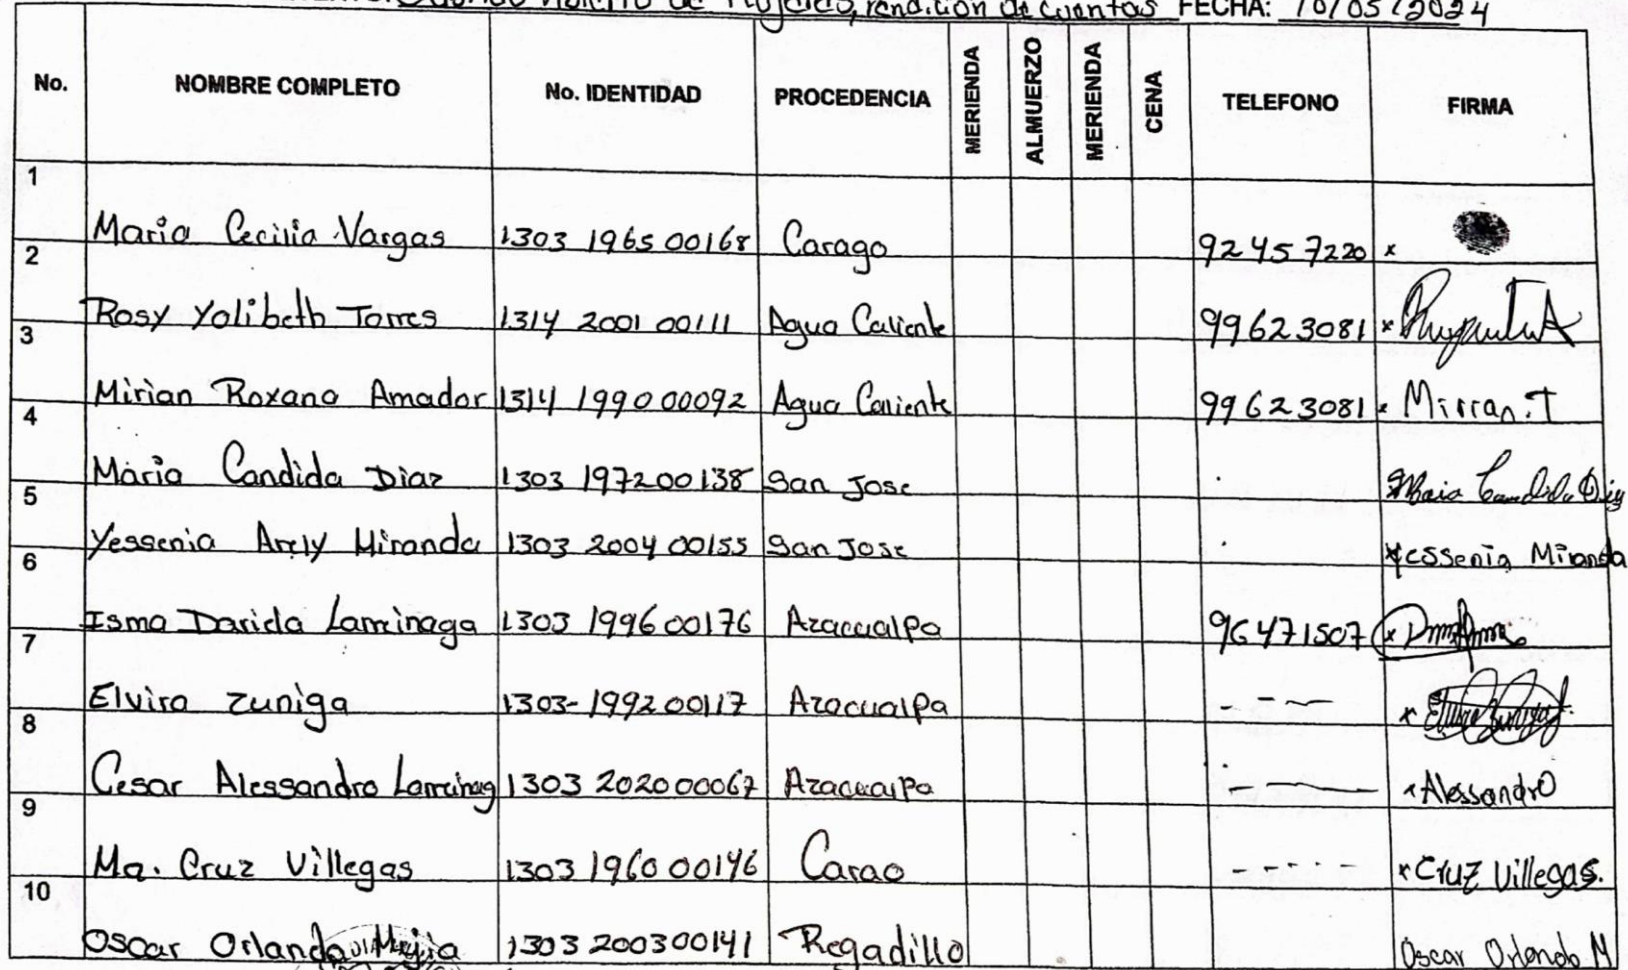 de rendición de cuentas FECHA: 10/05/2024
No. NOMBRE COMPLETO No. IDENTIDAD PROCEDENCIA MERIENDA ALMUERZO MERIENDA CENA TELEFONO FIRMA
1 Maria Cecilia Vargas 1303 1965 00168 Carago 92457220 x
2 Rosy Yolibeth Torres 1314 2001 00111 Agua Caliente 99623081 x
3 Mirian Roxana Amador 1314 1990 00092 Agua Caliente 99623081 x Mirian.T
4 Maria Candida Diaz 1303 1972 00138 San Jose Maria Candida Diaz
5 Yessenia Arely Miranda 1303 2004 00155 San Jose Yessenia Miranda
6 Isma Darida Larrinaga 1303 1996 00176 Azacualpa 96471507 x
7 Elvira Zuniga 1303-1992 00117 Azacualpa - - - x
8 Cesar Alessandro Larrinag 1303 2020 00067 Azacualpa - — x Alessandro
9 Ma. Cruz Villegas 1303 1960 00146 Carao - - - - - x Cruz Villegas.
10 Oscar Orlando Mejia 1303 2003 00141 Regadillo Oscar Orlando M